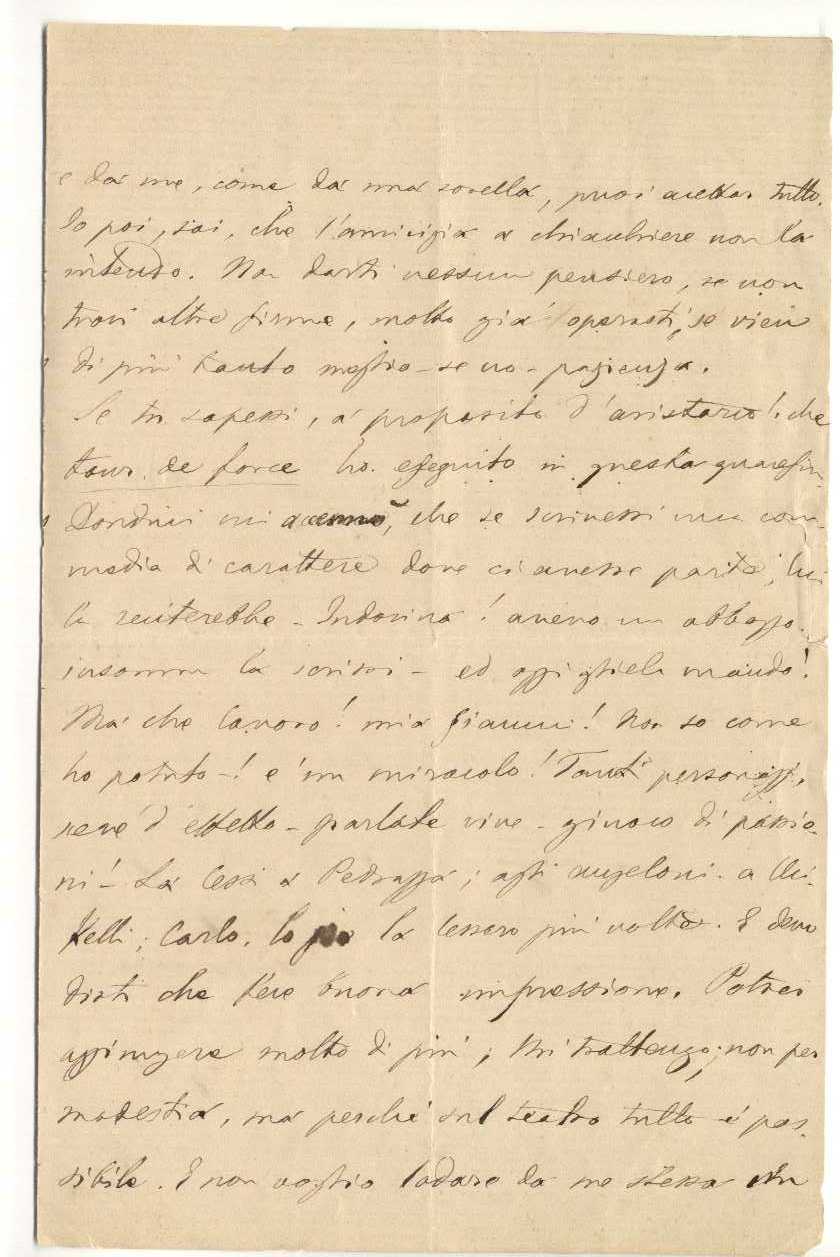 e da me, come da una sorella, puoi accettar tutto.
Io poi, sai, che l'amicizia a chiacchiere non la
intendo. Non darti nessun pensiero, se non
trovi altre firme, molto già operasti, se vien
di più tanto meglio - se no - pazienza.
Se tu sapessi, a proposito d' che
tour de force ho eseguito in questa
Dondini mi accennò, che se scrivessi una com-
media di carattere dove ci avesse parte, lui
la reciterebbe - Indovina! avevo un abbozzo.
insomma la scrissi - ed oggi gliela mando!
Ma che lavoro! mia Giannì! Non so come
ho potuto -! e' un miracolo! Tanti personaggi,
scene d'effetto - parlate vive - giuoco di passio-
ni! - La lessi a Pedrazza; agli Angeloni - a
Carlo. la lessero più volte. E devo
dirti che fece buona impressione. Potrei
aggiungere molto di più; mi trattengo; non per
modestia, ma perchè sul teatro tutto è pos-
sibile. E non voglio lodare da me stessa un